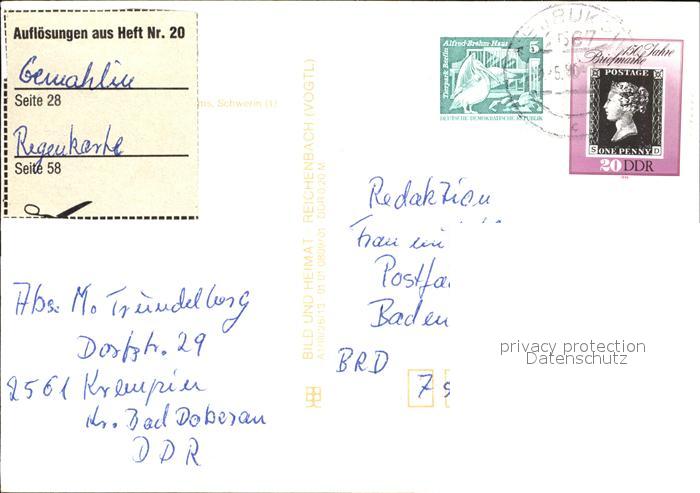 Auflösungen aus Heft Nr. 20
Gemahlin
Seite 28
Regenkarte
Seite 58
Schwerin (1)
BILD UND HEIMAT REICHENBACH (VOGTL)
Alfred-Brehm-Haus
Tierpark Berlin
5
DEUTSCHE DEMOKRATISCHE REPUBLIK
150 Jahre
Briefmarke
POSTAGE
S ONE PENNY D
20 DDR
Redaktion
Frau im
Postfa
Baden
BRD
7
Abs. M. Tründelberg
Dorfstr. 29
2561 Krempin
Kr. Bad Doberan
DDR
privacy protection
Datenschutz